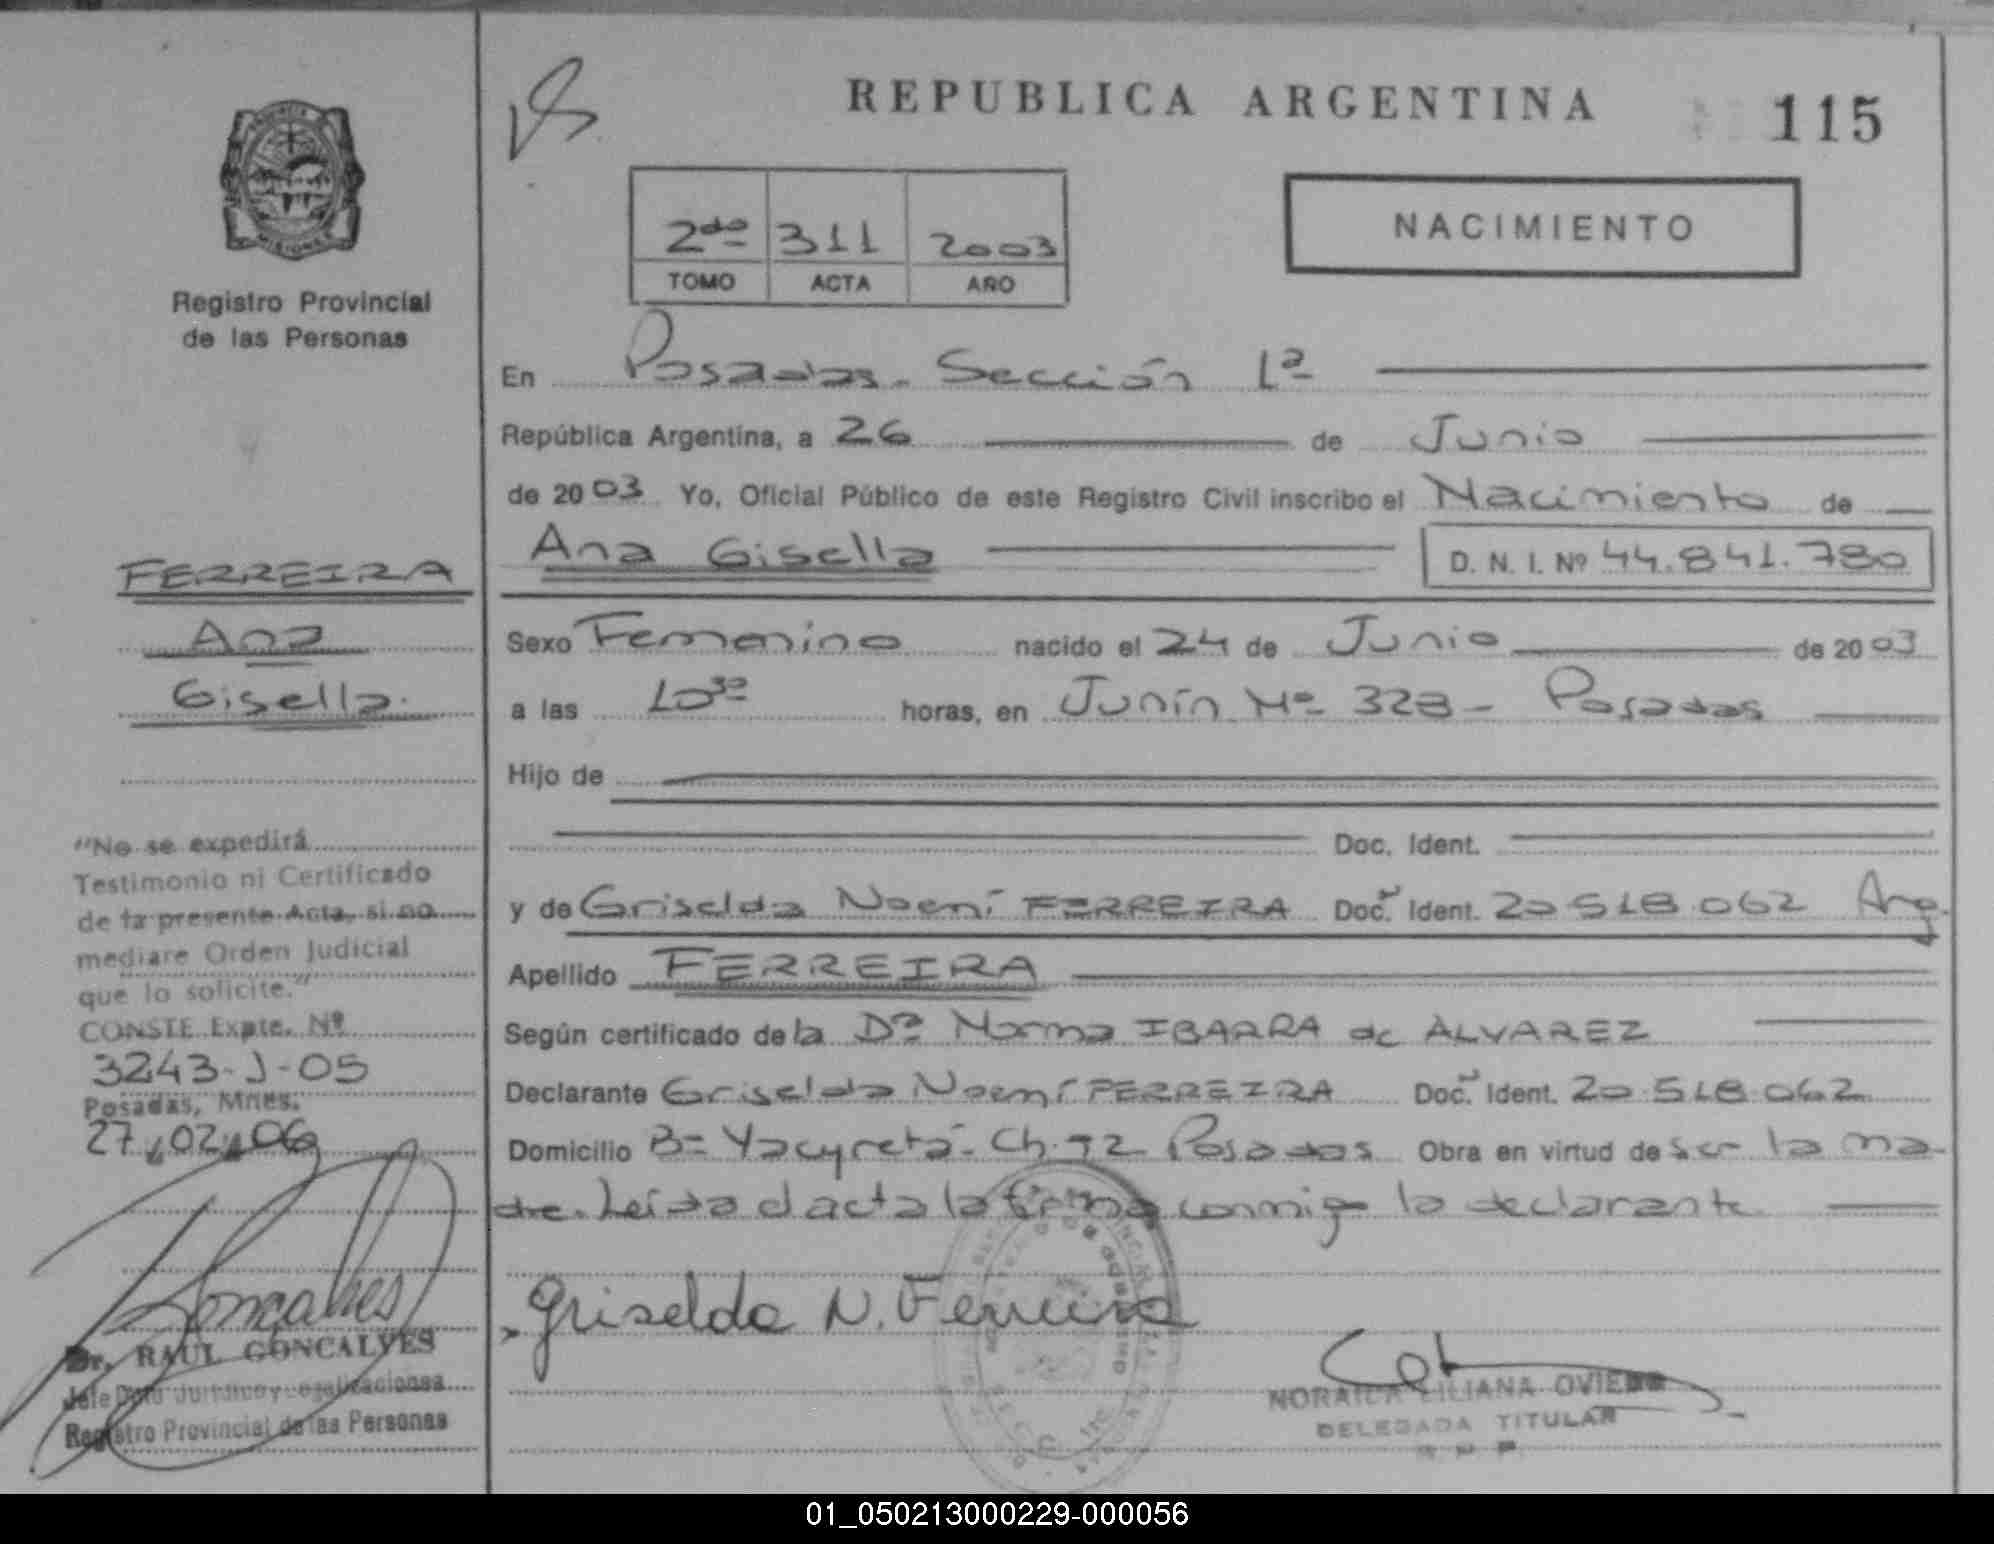 REPUBLICA ARGENTINA
115
MISIONES
Registro Provincial
de las Personas
2do 311 2003
TOMO ACTA AÑO
NACIMIENTO
En Posadas - Sección 1ª
República Argentina, a 26 de Junio
de 2003 Yo, Oficial Público de este Registro Civil inscribo el Nacimiento de
Ana Gisella D. N. I. Nº 44.841.780
Sexo Femenino nacido el 24 de Junio de 2003
a las 10 30 horas, en Junín Nº 328 - Posadas
Hijo de
Doc. Ident.
y de Griselda Noemí FERREIRA Doc. Ident. 20 518 062 Arg.
Apellido FERREIRA
Según certificado de la Dª Norma IBARRA de ALVAREZ
Declarante Griselda Noemí FERREIRA Doc. Ident. 20.518.062
Domicilio Bº Yacyretá - Ch. 92 Posadas Obra en virtud de ser la ma-
dre. Leída el acta la firma conmigo la declarante
Griselda N. Ferreira
NORAIDA LILIANA OVIEDO
DELEGADA TITULAR
FERREIRA
Ana
Gisella.
"No se expedirá
Testimonio ni Certificado
de la presente Acta, si no
mediare Orden Judicial
que lo solicite."
CONSTE Expte. Nº
3243-J-05
Posadas, Mnes.
27, 02, 06
Goncalves
Dr. RAUL GONCALVES
Jefe Dpto Jurídico y Legalizaciones
Registro Provincial de las Personas
01_050213000229-000056